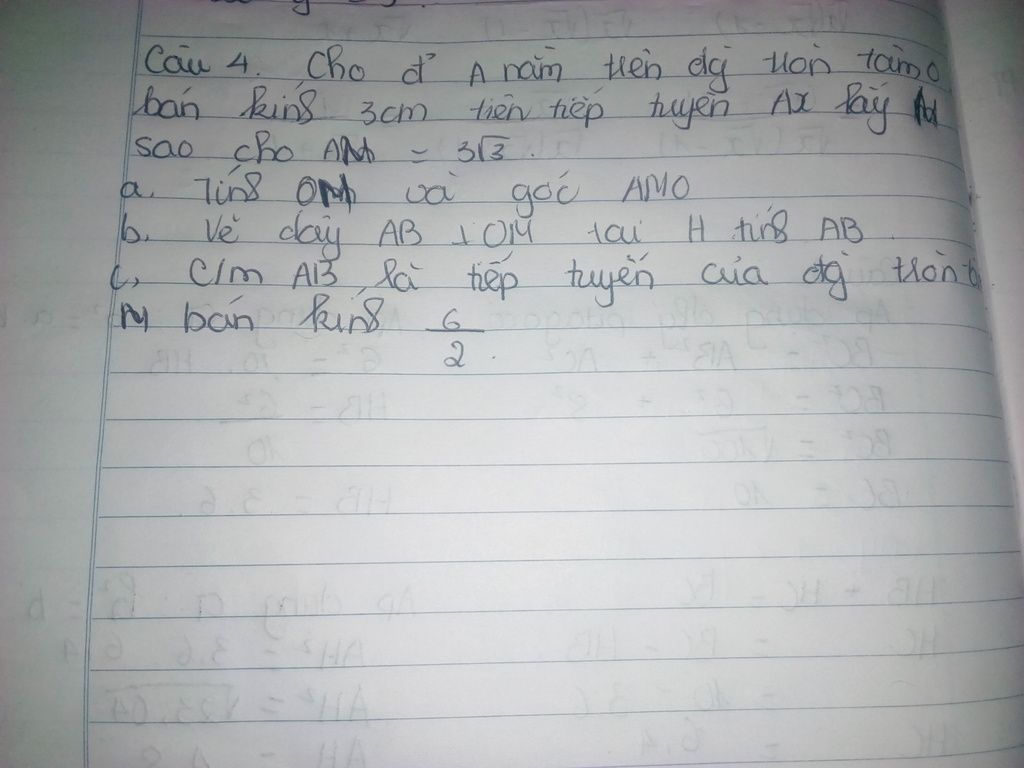 Câu 4. Cho đ' A nằm trên đg tròn tâm O
bán kính 3cm trên tiếp tuyến Ax lấy M
sao cho AM = 3√3.
a. Tính OM và góc AMO
b, Vẽ dây AB ⊥ OM tại H tính AB
c, C/m AB là tiếp tuyến của đg tròn
M bán kính 6/2.